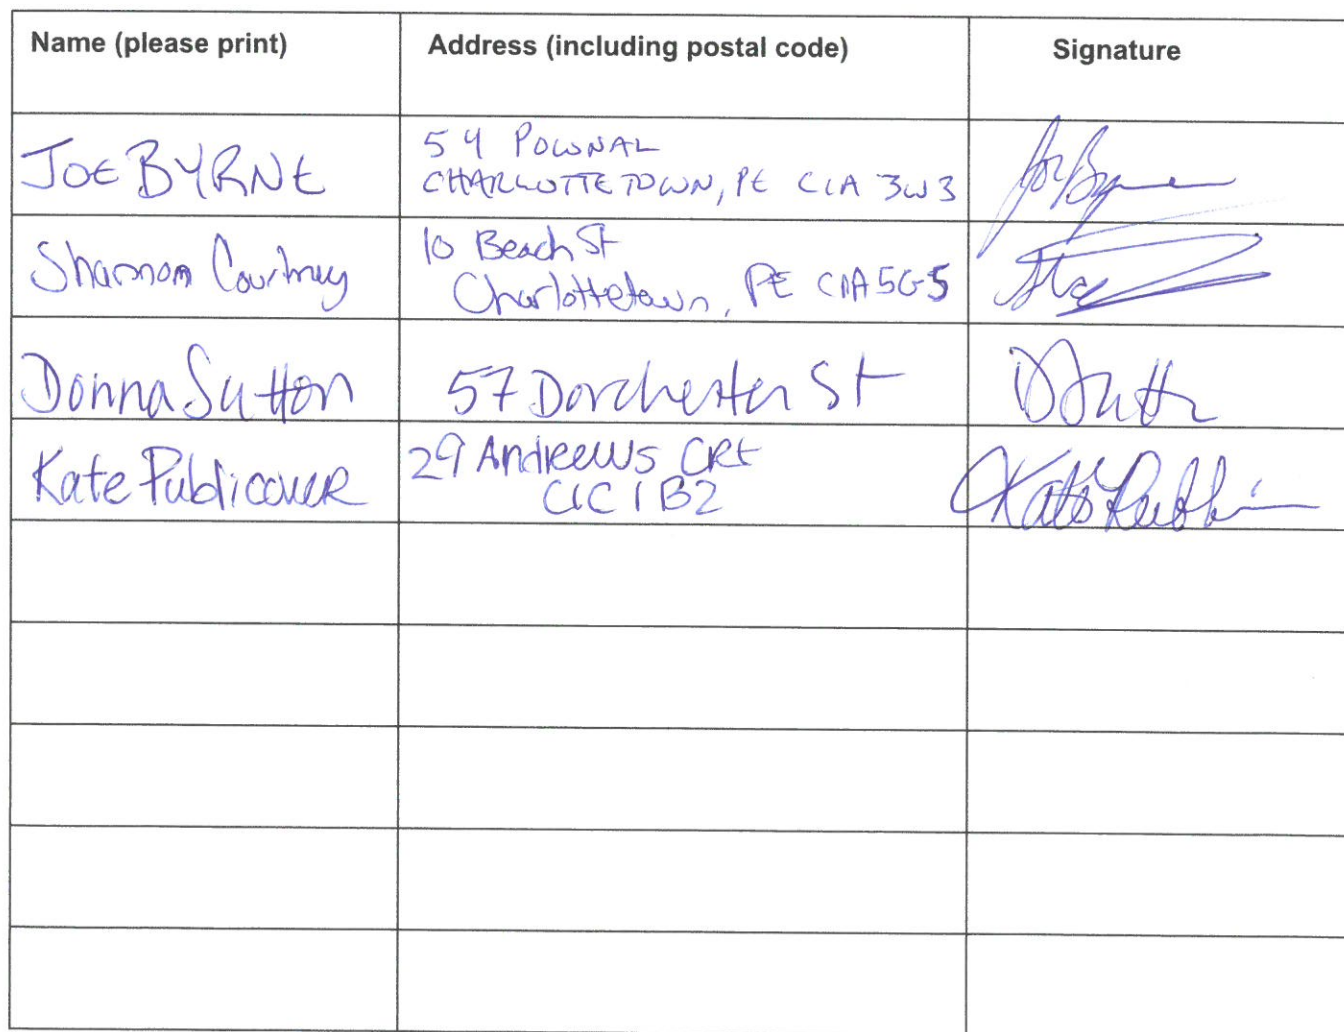 Name (please print) Address (including postal code) Signature
JOE BYRNE
54 POWNAL
CHARLOTTETOWN, PE C1A 3W3
Shannon Courtney
10 Beach St
Charlottetown, PE C1A 5G5
Donna Sutton 57 Dorchester St
Kate Publicover
29 Andrews CRt
C1C 1B2